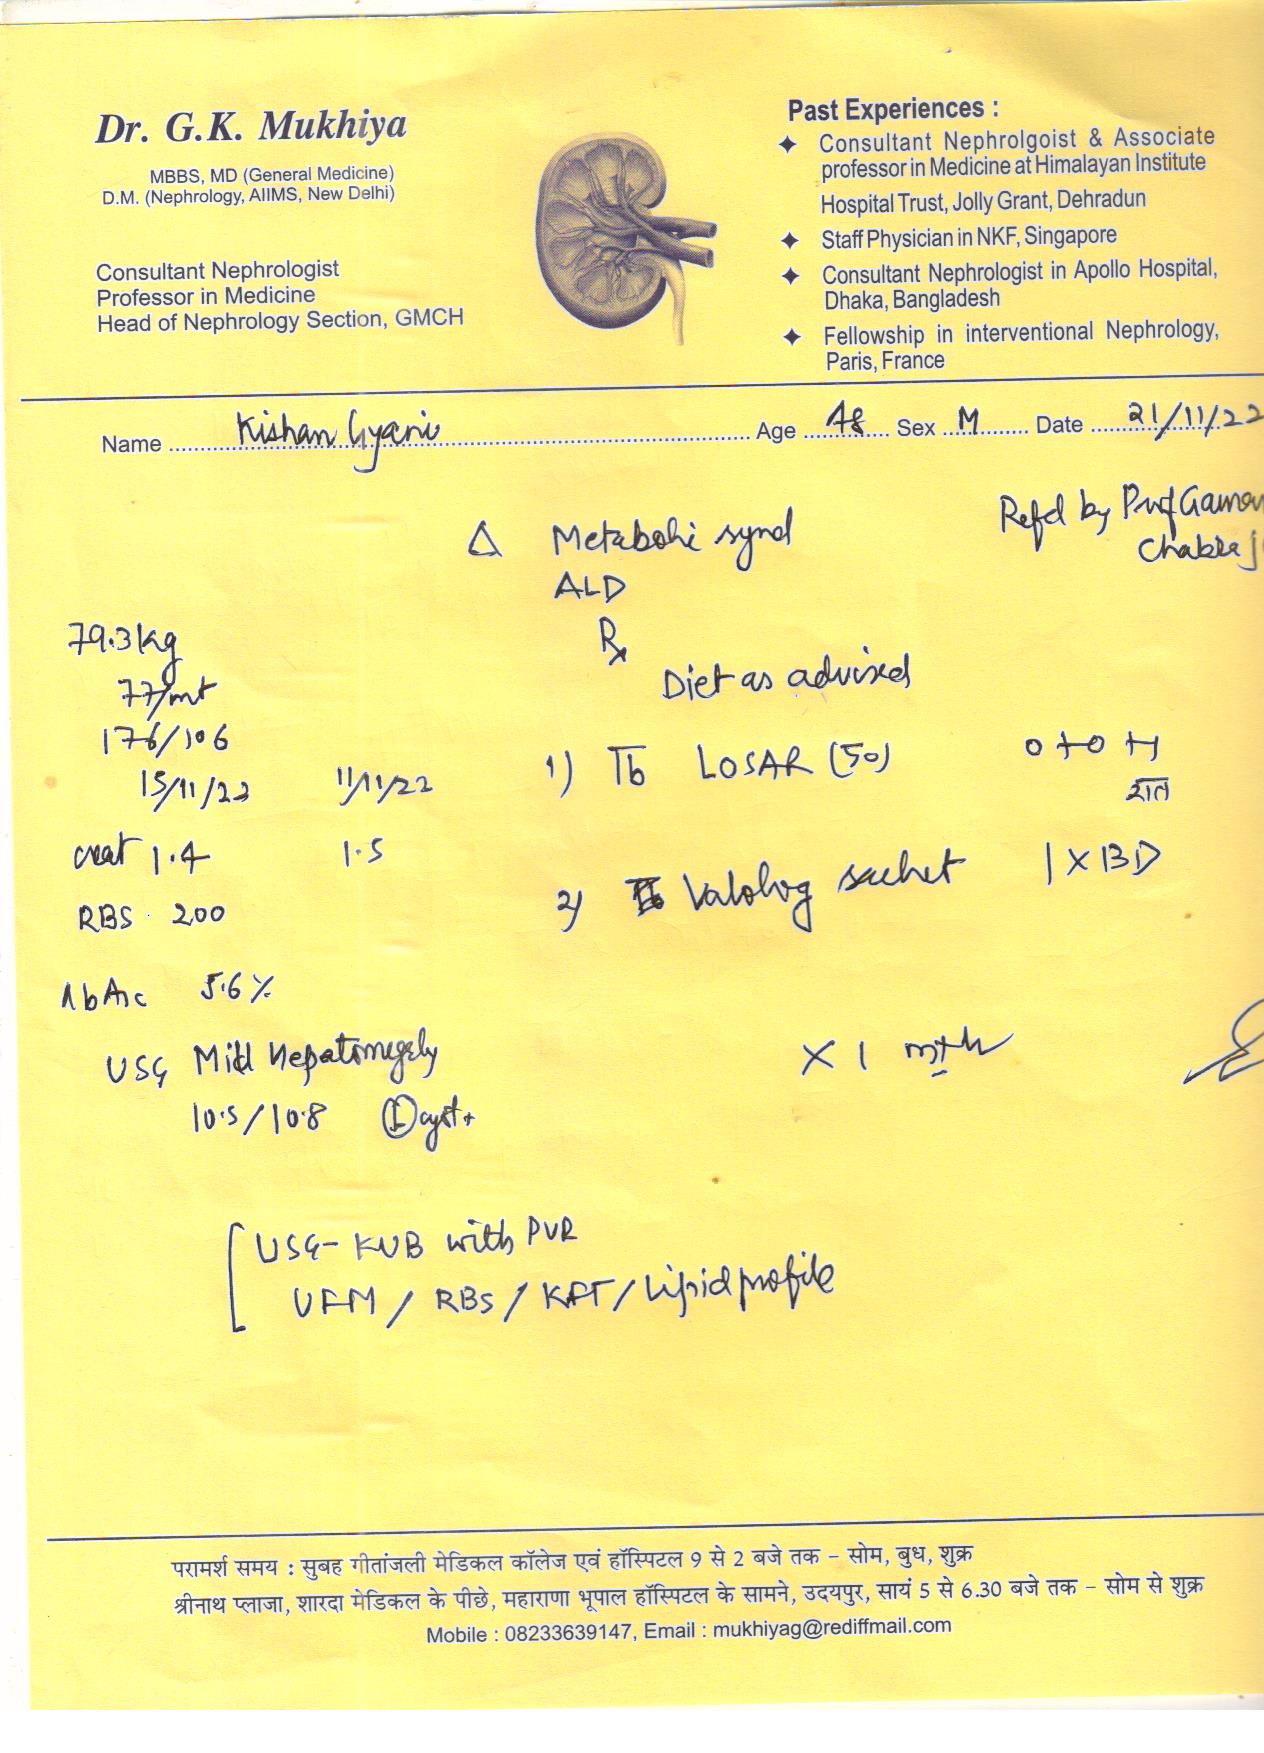 Dr. G.K. Mukhiya
MBBS, MD (General Medicine)
D.M. (Nephrology, AIIMS, New Delhi)
Consultant Nephrologist
Professor in Medicine
Head of Nephrology Section, GMCH
Past Experiences :
✦ Consultant Nephrolgoist & Associate
professor in Medicine at Himalayan Institute
Hospital Trust, Jolly Grant, Dehradun
✦ Staff Physician in NKF, Singapore
✦ Consultant Nephrologist in Apollo Hospital,
Dhaka, Bangladesh
✦ Fellowship in interventional Nephrology,
Paris, France
Name Kishan Gyani Age 48 Sex M Date 21/11/22
Refd by Prof
Δ Metabolic synd
ALD
Rx
Diet as advised
79.3 kg
77/mt
176/106
15/11/22 11/11/22
creat 1.4 1.5
RBS 200
HbA1c 5.6%
USG Mild Hepatomegaly
10.5/10.8 cyst+
1) Tb LOSAR (50) 0+0+1
रात
2) sachet 1 X BD
X 1 mth
USG-KUB with PVR
/ RBS / KFT / Lipid profile
परामर्श समय : सुबह गीतांजली मेडिकल कॉलेज एवं हॉस्पिटल 9 से 2 बजे तक – सोम, बुध, शुक्र
श्रीनाथ प्लाजा, शारदा मेडिकल के पीछे, महाराणा भूपाल हॉस्पिटल के सामने, उदयपुर, सायं 5 से 6.30 बजे तक – सोम से शुक्र
Mobile : 08233639147, Email : mukhiyag@rediffmail.com